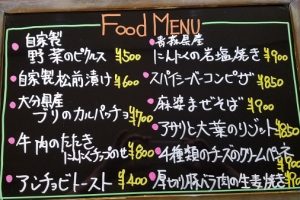 FOOD MENU
自家製
野菜のピクルス ¥500
自家製松前漬け ¥600
大分県産
ブリのカルパッチョ ¥700
牛肉のたたき
にんにくチップのせ ¥800
アンチョビトースト ¥400
青森県産
にんにくの岩塩焼き ¥700
スパイシーベーコンピザ ¥850
麻婆まぜそば ¥900
アサリと大葉のリゾット ¥850
4種類のチーズのクリームペンネ ¥900
厚切り豚バラ肉の生姜焼き